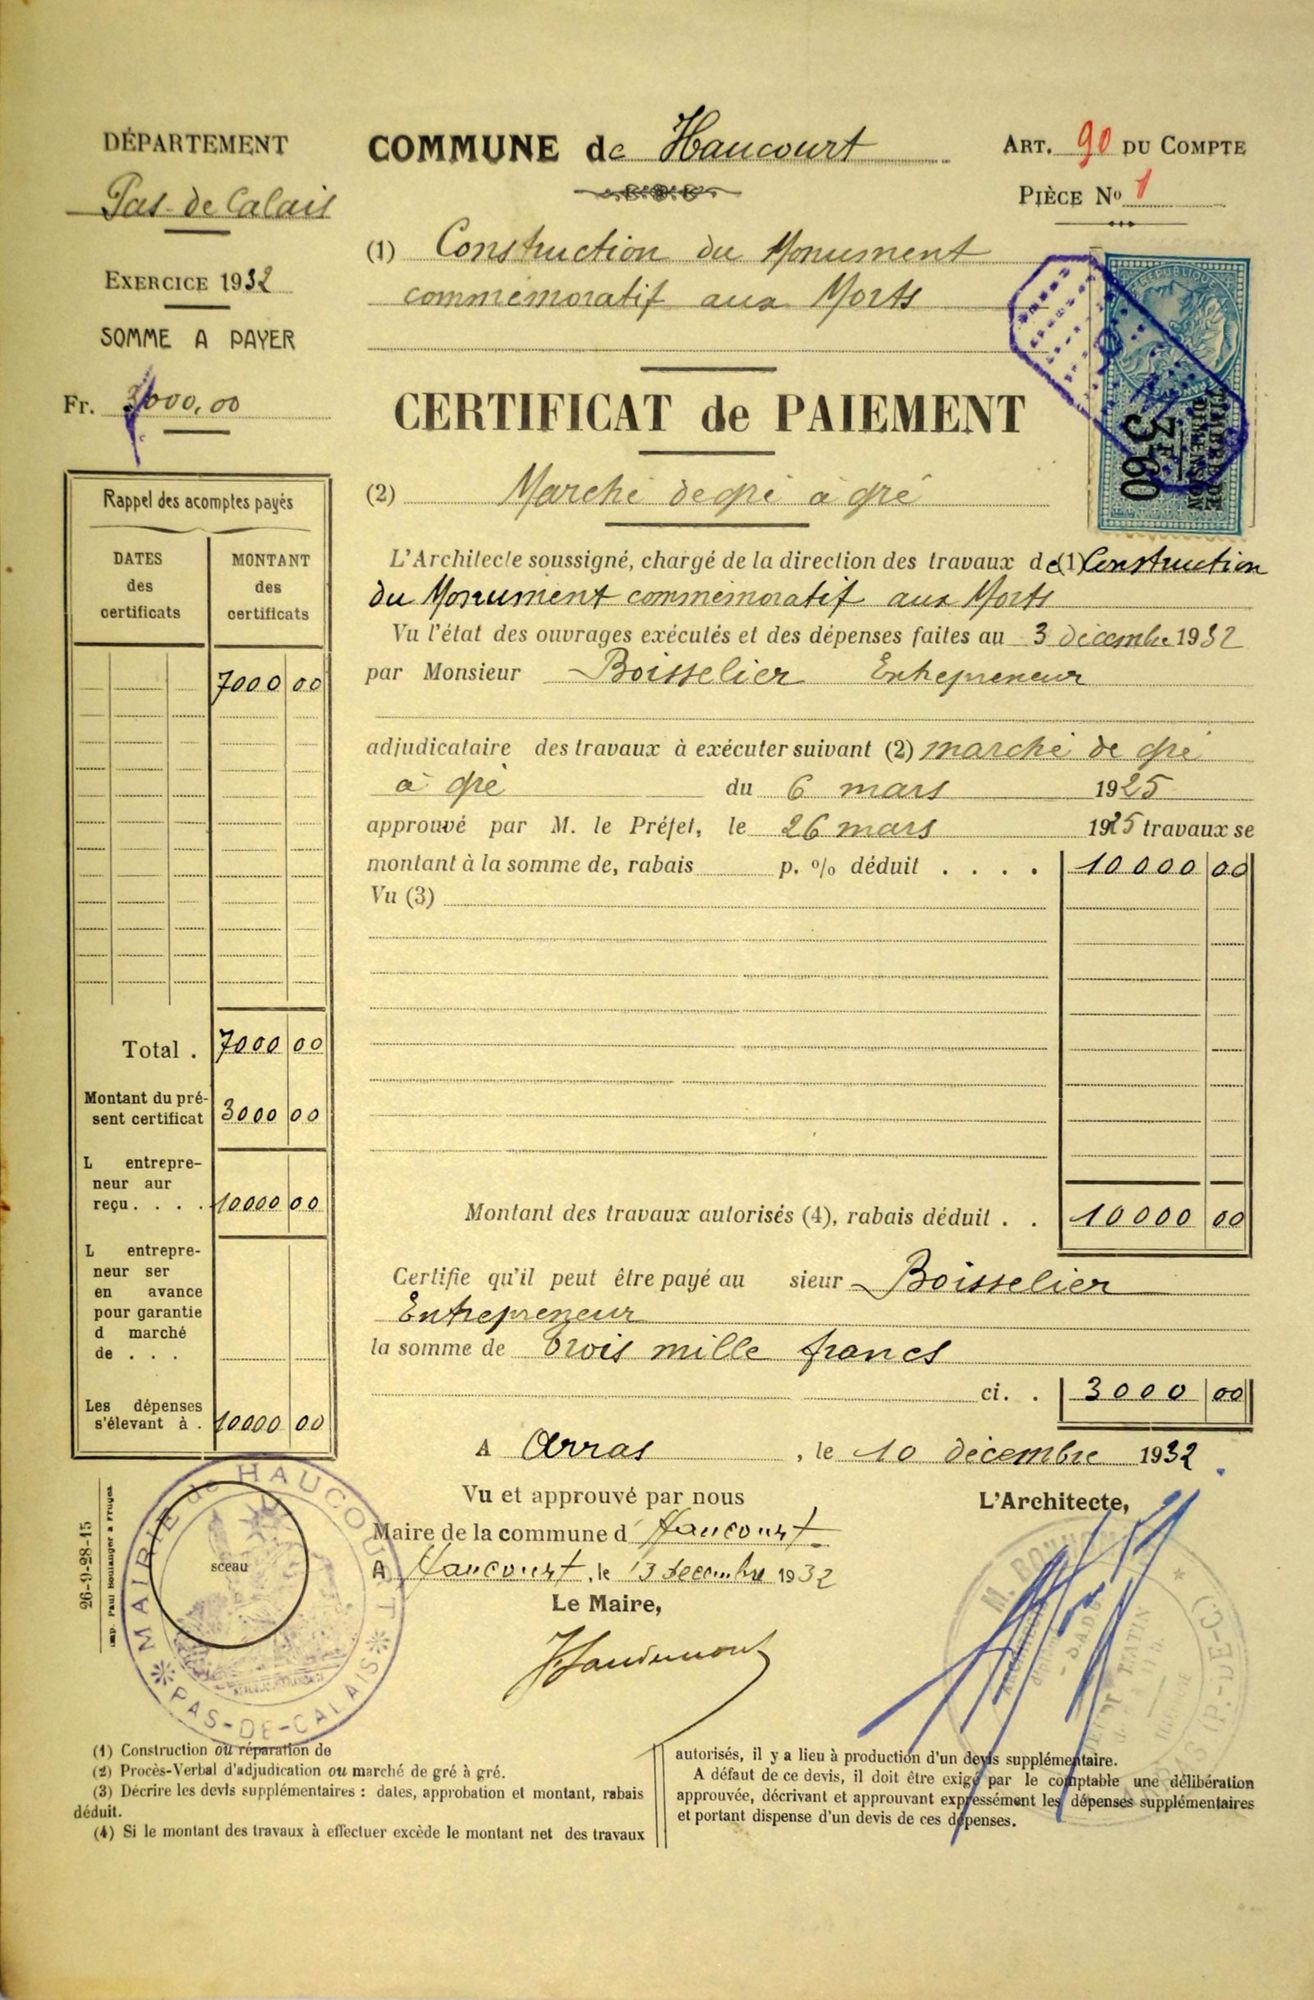 DÉPARTEMENT
Pas-de-Calais
EXERCICE 1932
SOMME A PAYER
Fr. 3000,00
COMMUNE de Haucourt
ART. 90 DU COMPTE
PIÈCE No 1
(1) Construction du Monument
commémoratif aux Morts
CERTIFICAT de PAIEMENT
(2) Marché de gré à gré
TIMBRE DE
DIMENSION
3F
3 60
Rappel des acomptes payés
DATES
des
certificats
MONTANT
des
certificats
7000 00
Total . 7000 00
Montant du pré-
sent certificat 3000 00
L entrepre-
neur aur
reçu . . . . 10000 00
L entrepre-
neur ser
en avance
pour garantie
d marché
de . . .
Les dépenses
s'élevant à . 10000 00
L'Architecte soussigné, chargé de la direction des travaux de (1) Construction
du Monument commémoratif aux Morts
Vu l'état des ouvrages exécutés et des dépenses faites au 3 décembre 1932
par Monsieur Boisselier Entrepreneur
adjudicataire des travaux à exécuter suivant (2) marché de gré
à gré du 6 mars 1925
approuvé par M. le Préfet, le 26 mars 1925 travaux se
montant à la somme de, rabais p. % déduit . . . . 10000 00
Vu (3)
Montant des travaux autorisés (4), rabais déduit . . 10000 00
Certifie qu'il peut être payé au sieur Boisselier
Entrepreneur
la somme de trois mille francs
ci. . 3000 00
A Arras , le 10 décembre 1932
Vu et approuvé par nous
Maire de la commune d' Haucourt
A Haucourt, le 13 décembre 1932
Le Maire,
L'Architecte,
MAIRIE de HAUCOURT
PAS-DE-CALAIS
sceau
26-9-28-15
Imp. Paul Boulanger à Fruges
(1) Construction ou réparation de
(2) Procès-Verbal d'adjudication ou marché de gré à gré.
(3) Décrire les devis supplémentaires : dates, approbation et montant, rabais
déduit.
(4) Si le montant des travaux à effectuer excède le montant net des travaux
autorisés, il y a lieu à production d'un devis supplémentaire.
A défaut de ce devis, il doit être exigé par le comptable une délibération
approuvée, décrivant et approuvant expressément les dépenses supplémentaires
et portant dispense d'un devis de ces dépenses.